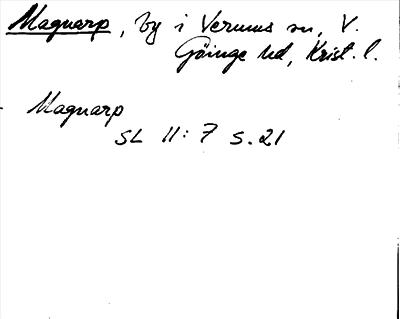 Magnarp, by i Verums sn, V.
Göinge hd, Krist. l.
Magnarp
SL 11:7 s.21